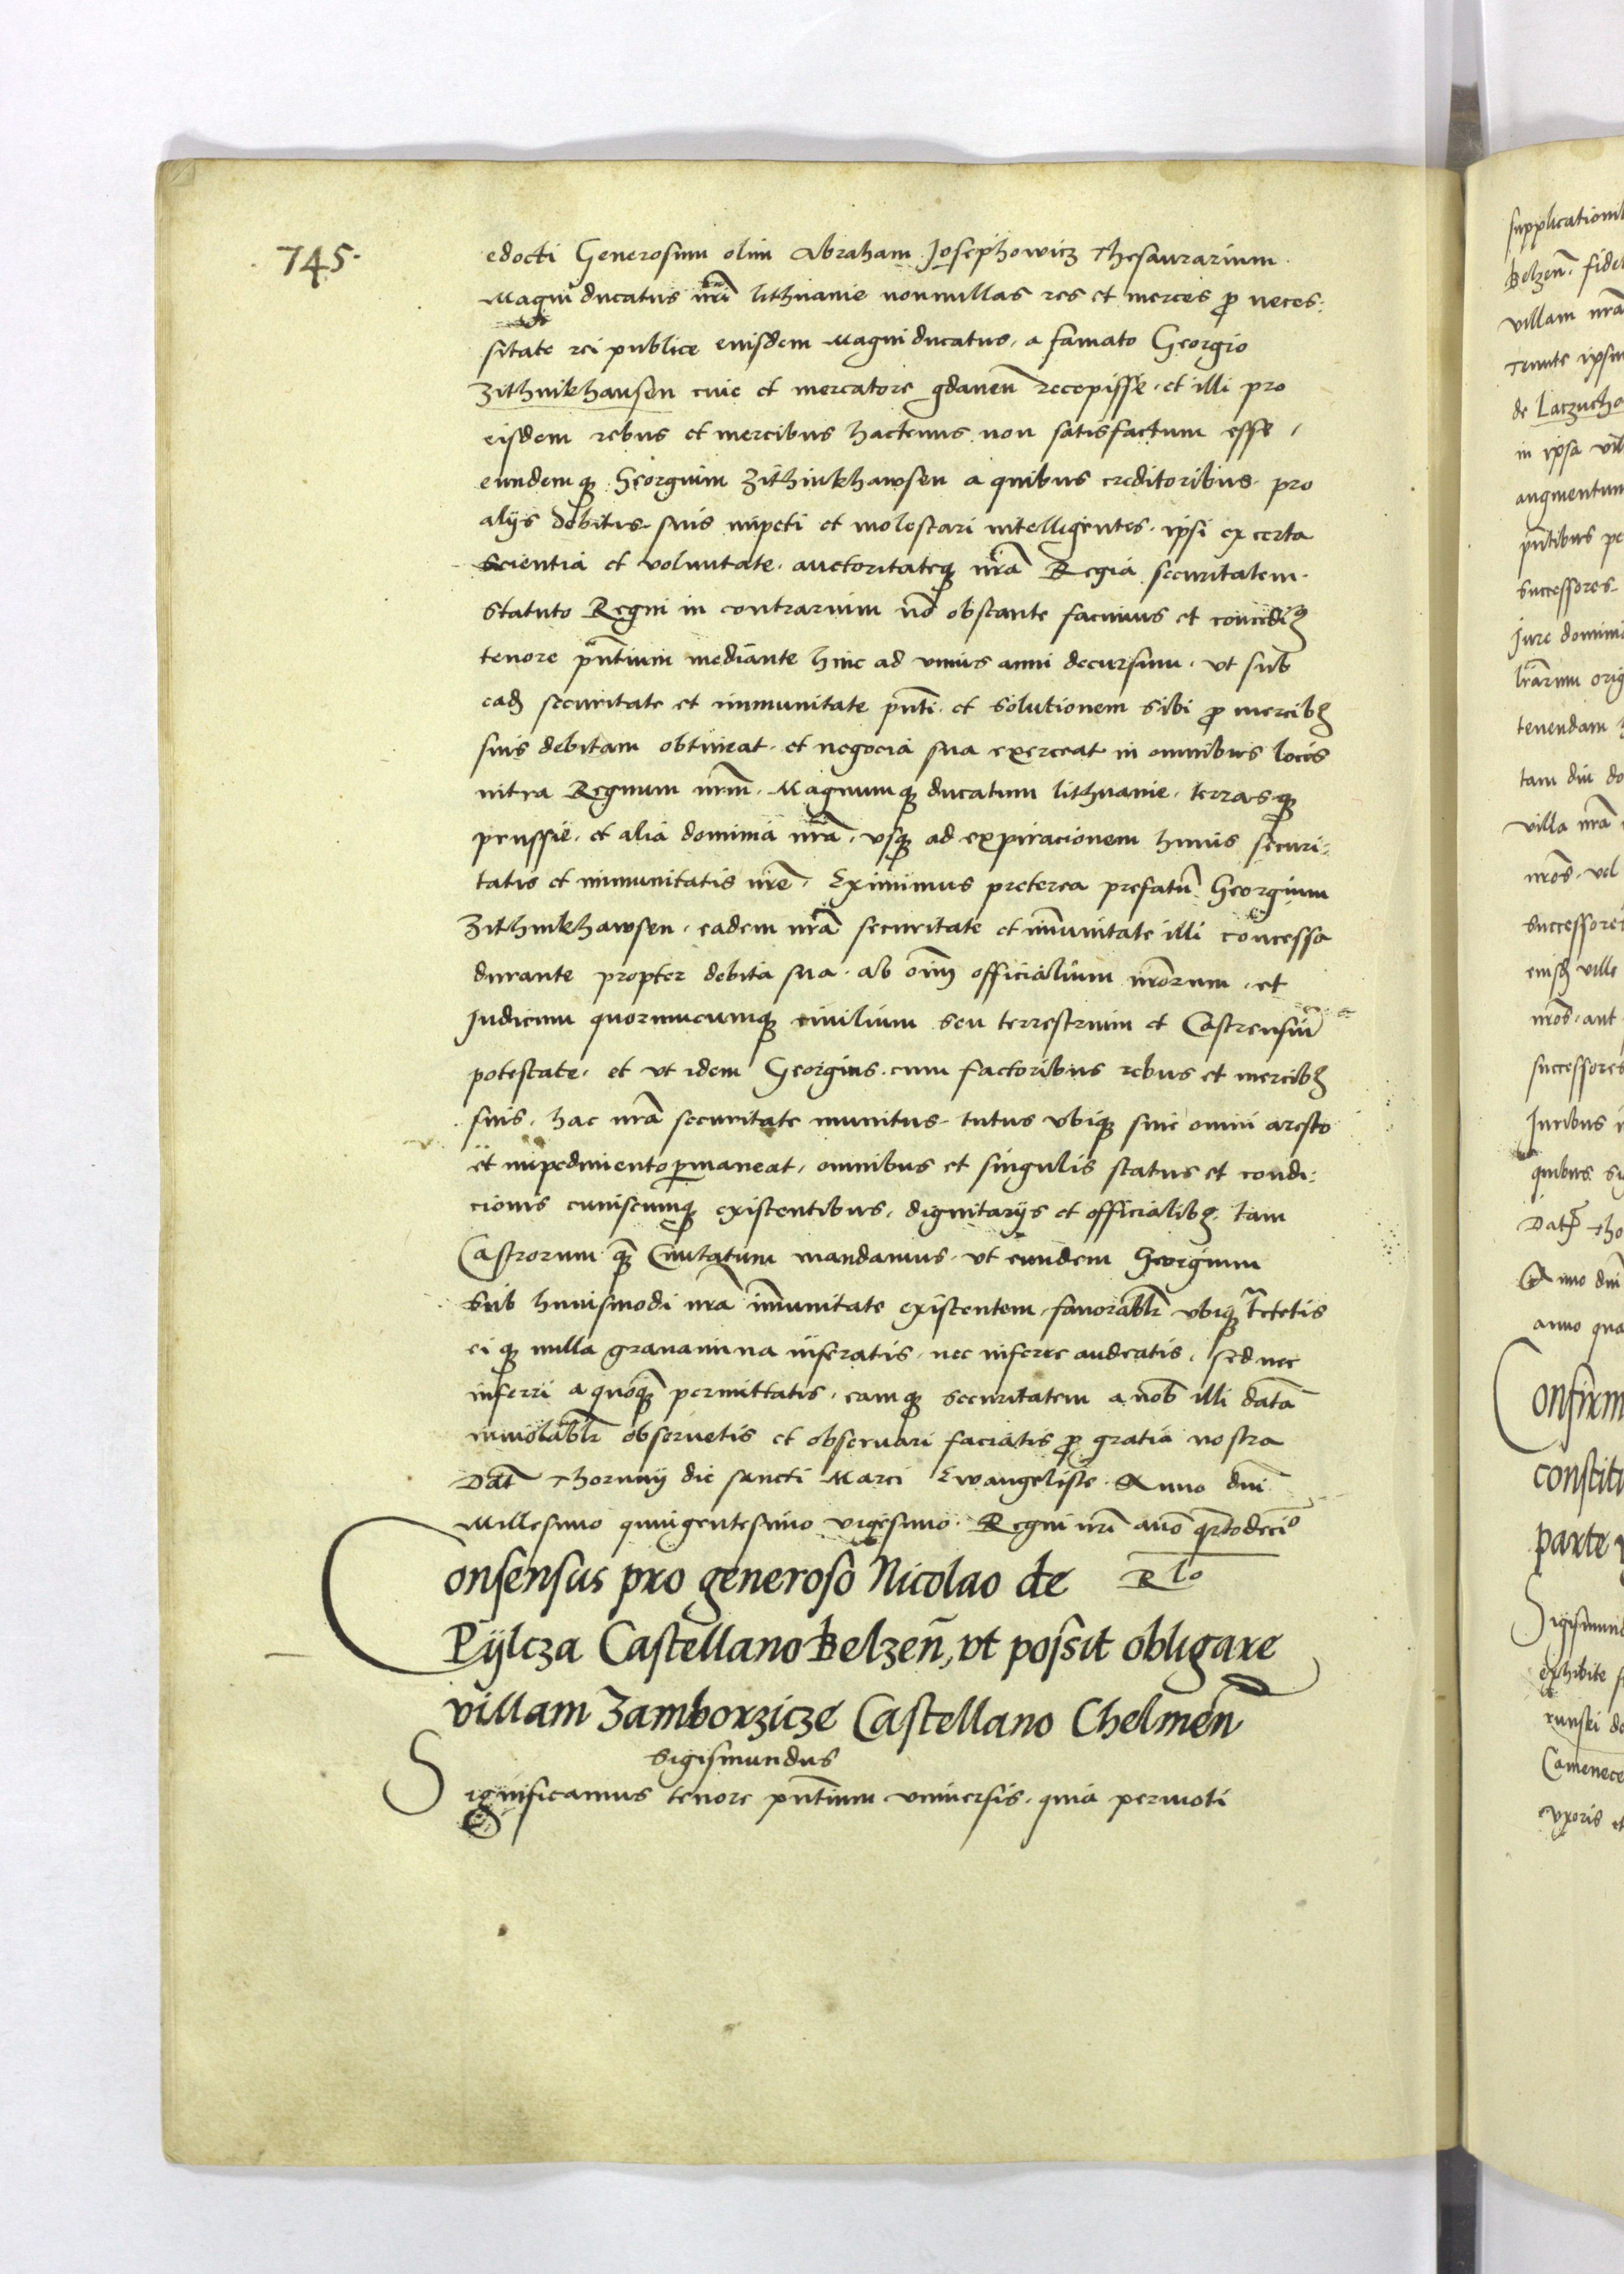 745.
edocti Generosum olim Abraham Josephowicz Thesaurarium
Magni ducatus nr̃i lithuanie nonnullas res et merces ꝓ neces:
sitate rei publice eiusdem Magni ducatus, a famato Georgio
Zithinkhausen ciue et mercatore gdaneñ recepisse, et illi pro
eisdem rebus et mercibus hactenus non satisfactum esse,
eundemqꝫ Georgium Zithinkhawsen a quibus creditoribus pro
alijs debitis suis impeti et molestari intelligentes, ipsi ex certa
scientia et voluntate, auctoritateqꝫ nr̃a Regia securitatem
statuto Regni in contrarium nõ obstante facimus et concedimꝫ
tenore pñtium mediante hinc ad vnius anni decursum, vt sub
eadꝫ securitate et immunitate pñti et solutionem sibi ꝓ mercibꝫ
suis debitam obtineat, et negocia sua exerceat in omnibus locis
intra Regnum nr̃m, Magnumqꝫ ducatum lithuanie, terrasqꝫ
prussie, et alia dominia nr̃a, vsqꝫ ad expiracionem huius securi:
tatis et immunitatis nr̃e, Eximimus preterea prefatũ Georgium
Zithinkhawsen, eadem nr̃a securitate et im̃unitate illi concessa
durante propter debita sua, ab om̃i officialium nr̃orum, et
Judicum quorumcumqꝫ ciuilium seu terrestrium et Castrensiũ
potestate, et vt idem Georgius cum factoribus rebus et mercibꝫ
suis, hac nr̃a securitate munitus, tutus vbiqꝫ sine omni aresto
et impedimento ꝑmaneat, omnibus et singulis status et condi:
cionis cuiuscumqꝫ existentibus, dignitarijs et officialibꝫ tam
Castrorum qꝫ̃ Ciuitatum mandamus, vt eundem Georgium
sub huiusmodi nr̃a im̃unitate existentem, fauorabl̃r vbiqꝫ t̃ctetis
ei qꝫ nulla grauamina inferatis, nec inferre audeatis, sed nec
inferri a quoqꝫ̃ permittatis, eamqꝫ securitatem a nob̃ illi datã
inuiolabl̃r obseruetis et obseruari faciatis ꝓ gratia nostra
Dat̃ Thorunij die sancti Marci Ewangeliste Anno dñi
Millesimo quingentesimo vigesimo Regni nr̃i añno qͬtodecĩo
Consensus pro generoso Nicolao de Rlo
Pijlcza Castellano Belzeñ, vt possit obligare
villam Zamborzicze Castellano Chelmeñ
Sigismundus
Significamus tenore pñtium vniuersis, quia permoti
supplicationi
Belzeñ, fidel
villam nr̃a
de Laczucho
in ipsa vil
augmentum
pñtibus pe
successores
Jure domini
lr̃arum orig
tenendam
tam diu do
villa nr̃a
nr̃os, vel
successores
eiusdꝫ ville
nr̃os, aut
successores
Juribus
quibus si
Dat̃ Tho
Anno dñi
anno qua
Confirm
constit
parte
Sigismund
exhibite
runski de
Camenece
vxoris et